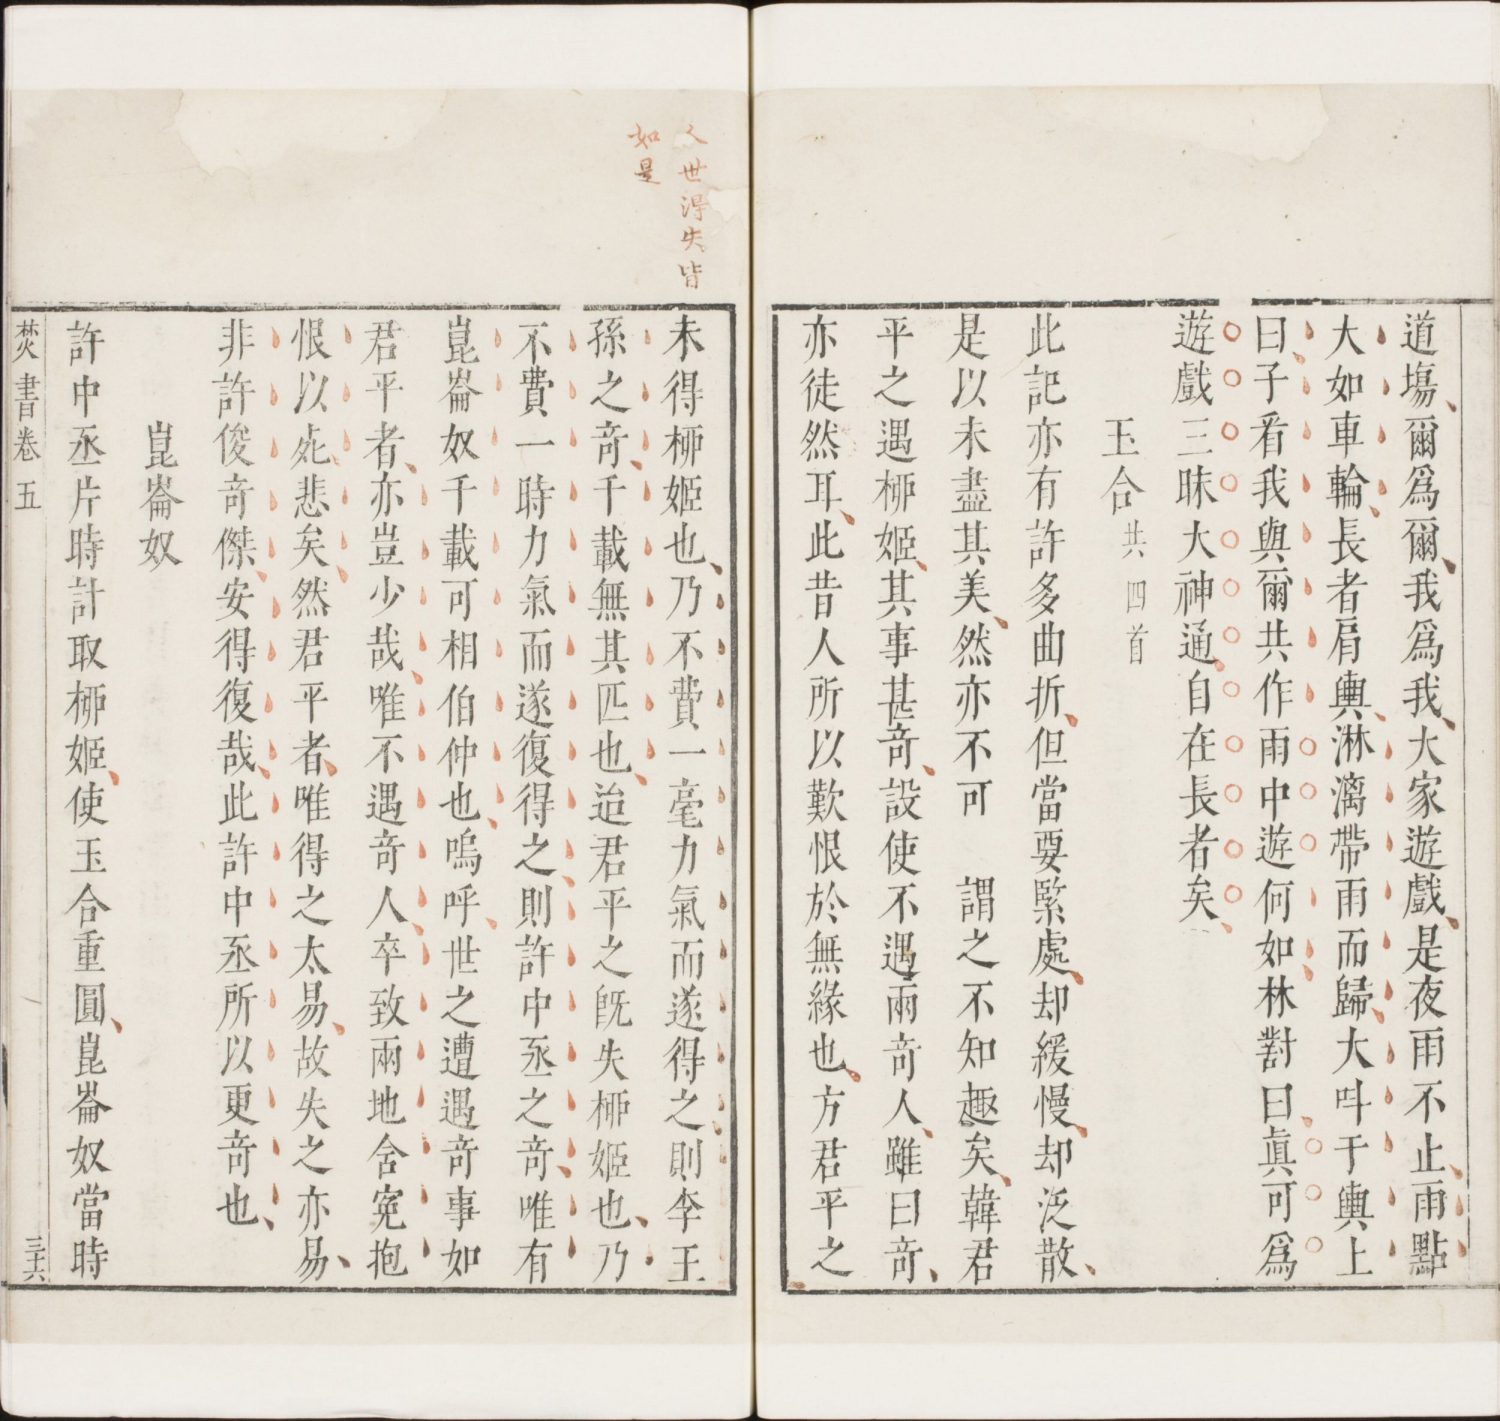 道塲爾爲爾我爲我大家遊戲是夜雨不止雨點
大如車輪長者肩輿淋漓帶雨而歸大呌于輿上
曰子看我與爾共作雨中遊何如林對曰眞可爲
遊戲三昧大神通自在長者矣
玉合共四首
此記亦有許多曲折但當要緊處却緩慢却泛散
是以未盡其美然亦不可　謂之不知趣矣韓君
平之遇柳姬其事甚奇設使不遇兩奇人雖曰奇
亦徒然耳此昔人所以歎恨於無緣也方君平之
人世得失皆
如是
未得柳姬也乃不費一毫力氣而遂得之則李王
孫之奇千載無其匹也迨君平之旣失柳姬也乃
不費一時力氣而遂復得之則許中丞之奇唯有
崑崙奴千載可相伯仲也嗚呼世之遭遇奇事如
君平者亦豈少哉唯不遇奇人卒致兩地含寃抱
恨以死悲矣然君平者唯得之太易故失之亦易
非許俊奇傑安得復哉此許中丞所以更奇也
崑崙奴
許中丞片時計取柳姬使玉合重圓崑崙奴當時
焚書卷五
三十六